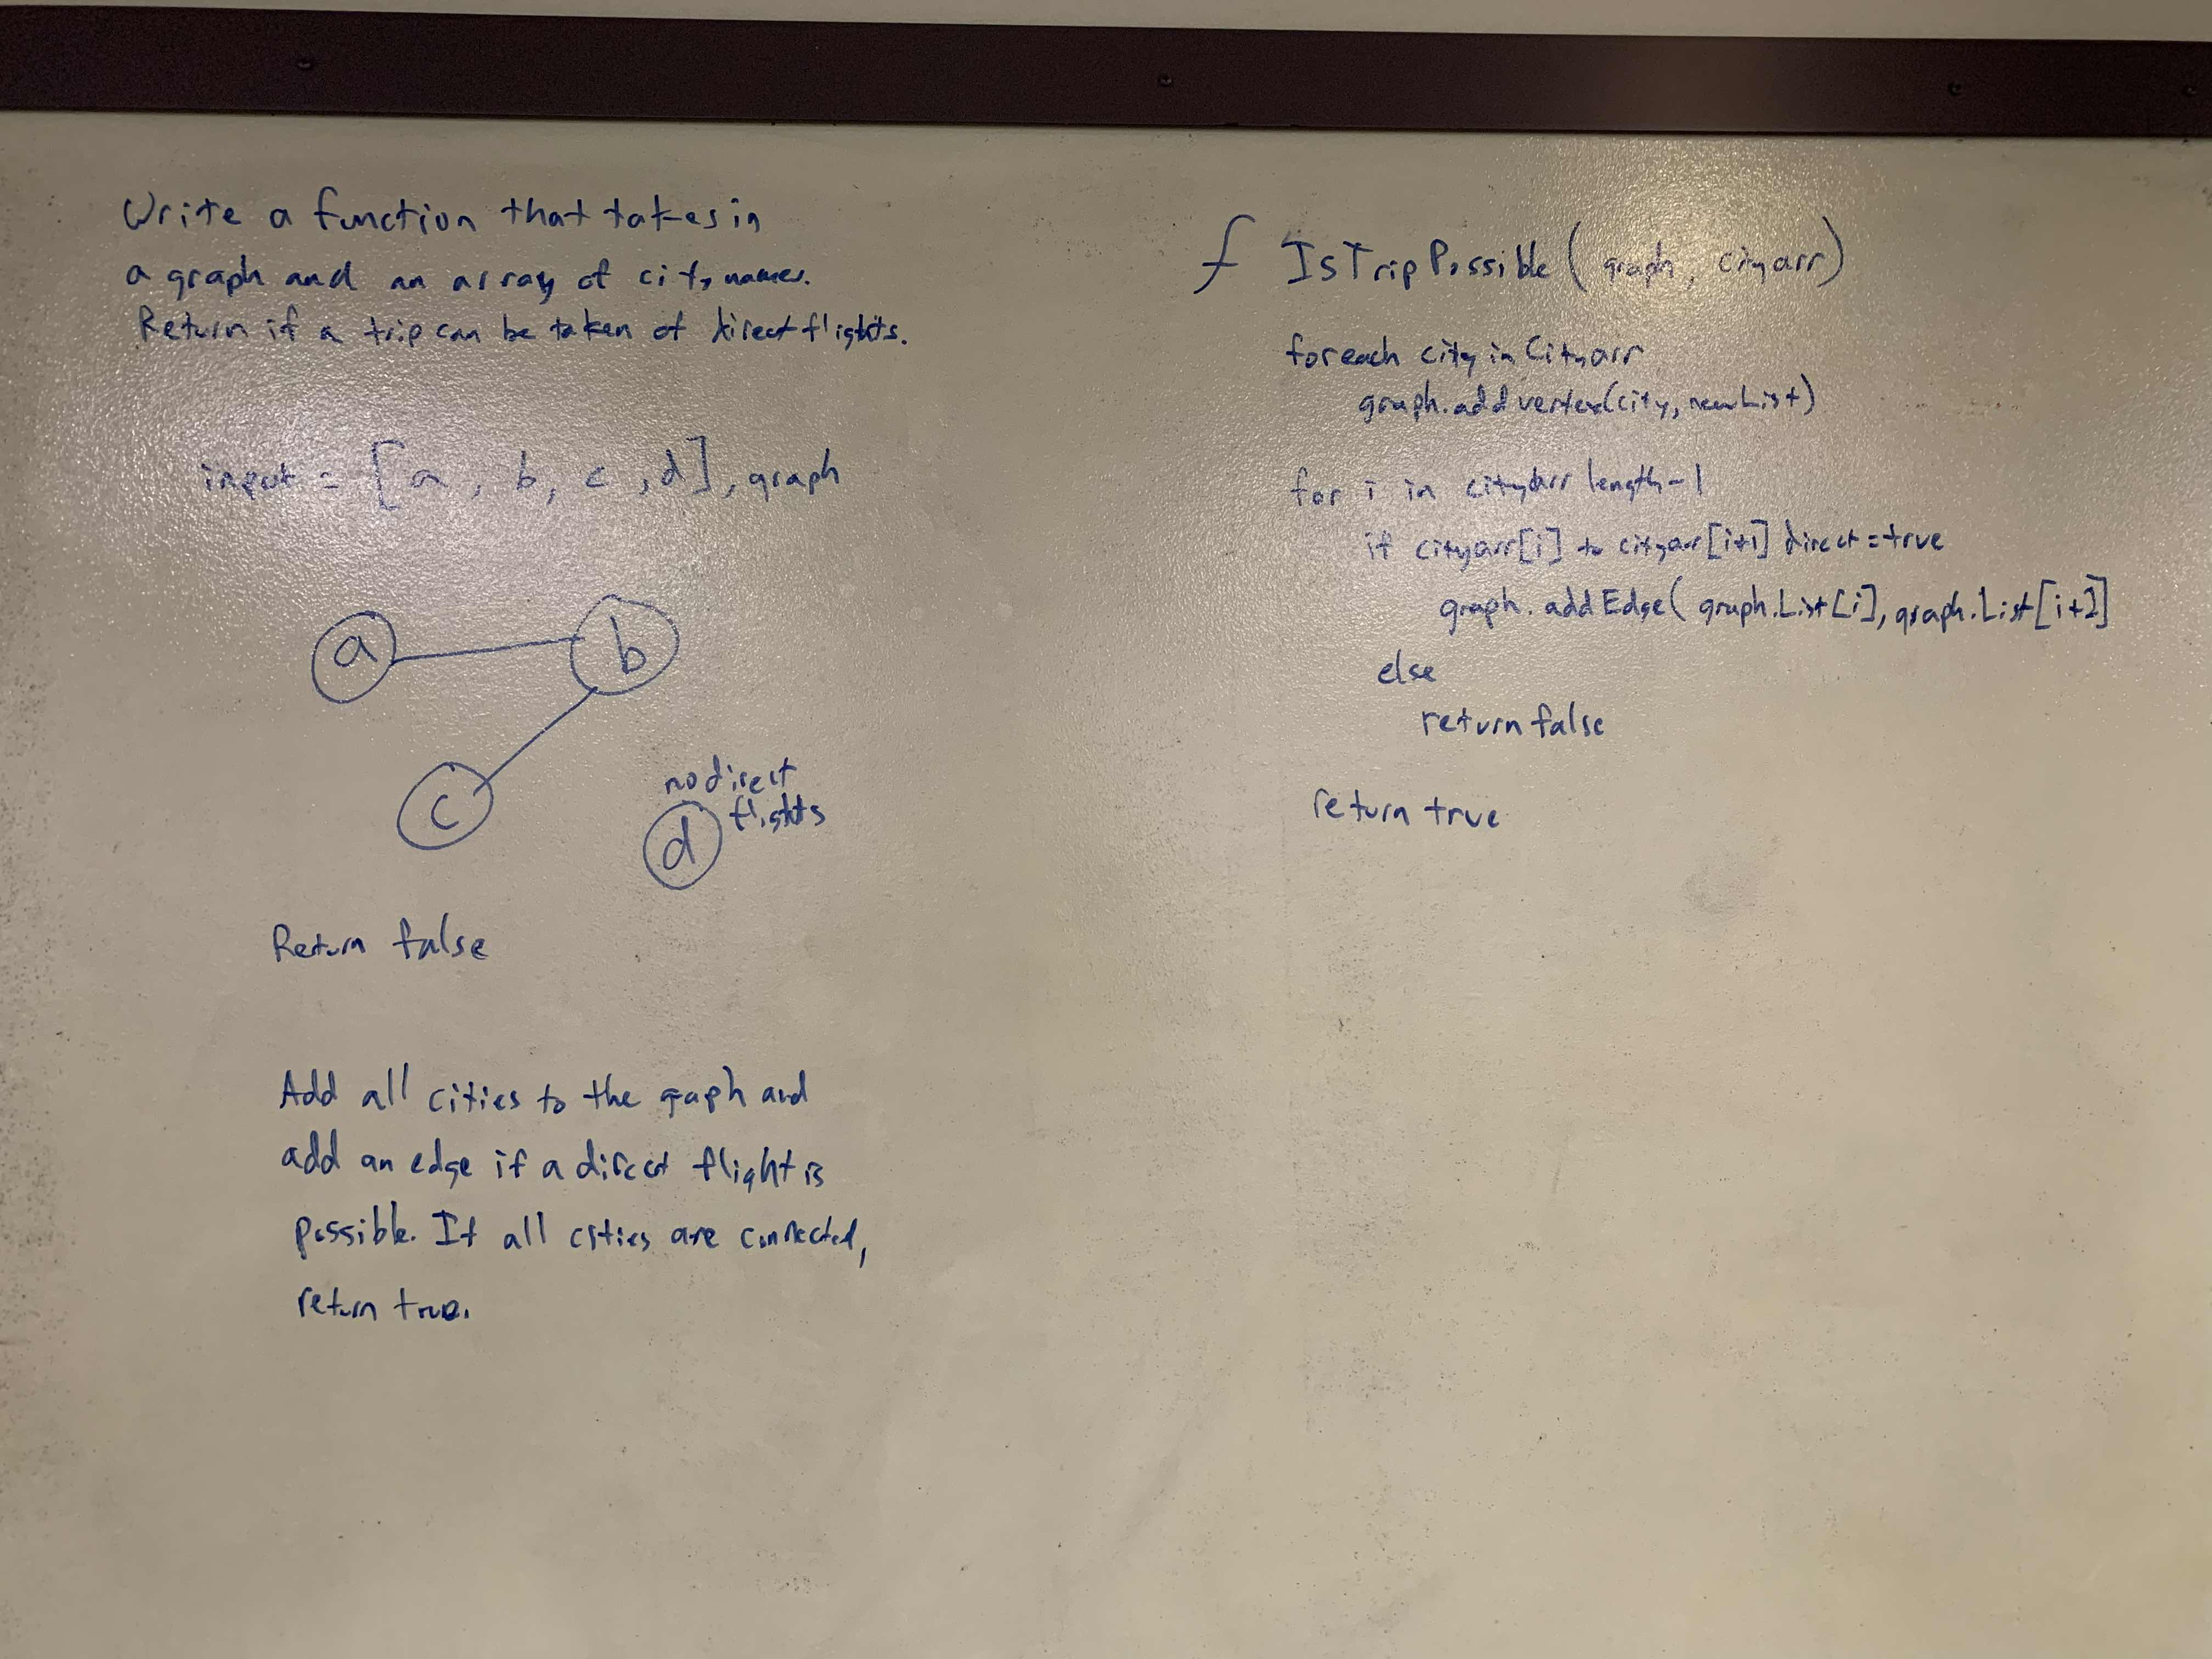 Write a function that takes in
a graph and an array of city names.
Return if a trip can be taken of direct flights.
input = [a, b, c, d], graph
a
b
c
no direct
flights
d
Return false
Add all cities to the graph and
add an edge if a direct flight is
possible. If all cities are connected,
return true.
f IsTripPossible(graph, cityarr)
foreach city in Cityarr
graph.addvertex(city, newList)
for i in cityarr length-1
if cityarr[i] to cityarr[i+1] direct = true
graph.addEdge(graph.List[i], graph.List[i+1]
else
return false
return true